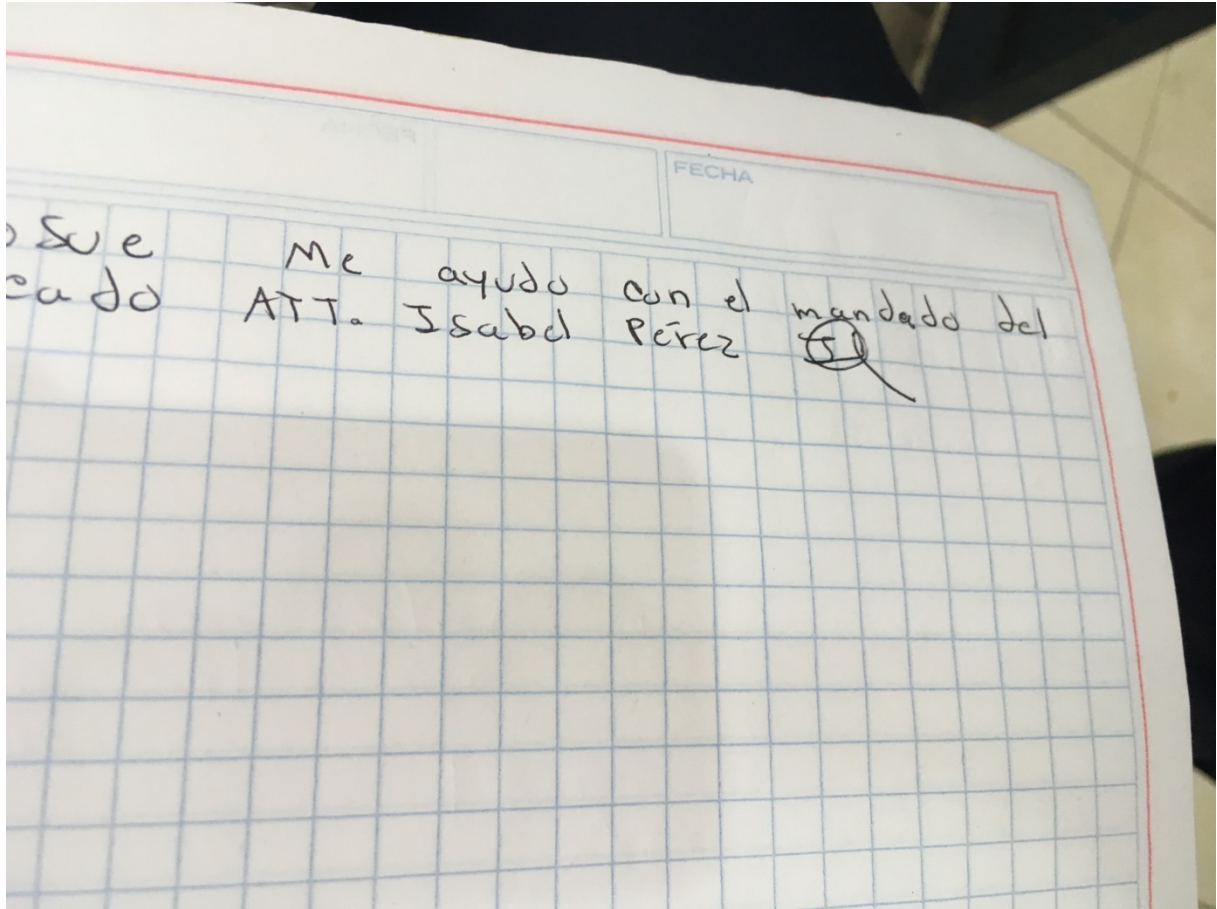 FECHA
osue Me ayudo con el mandado del
cado ATT. Isabel Pérez